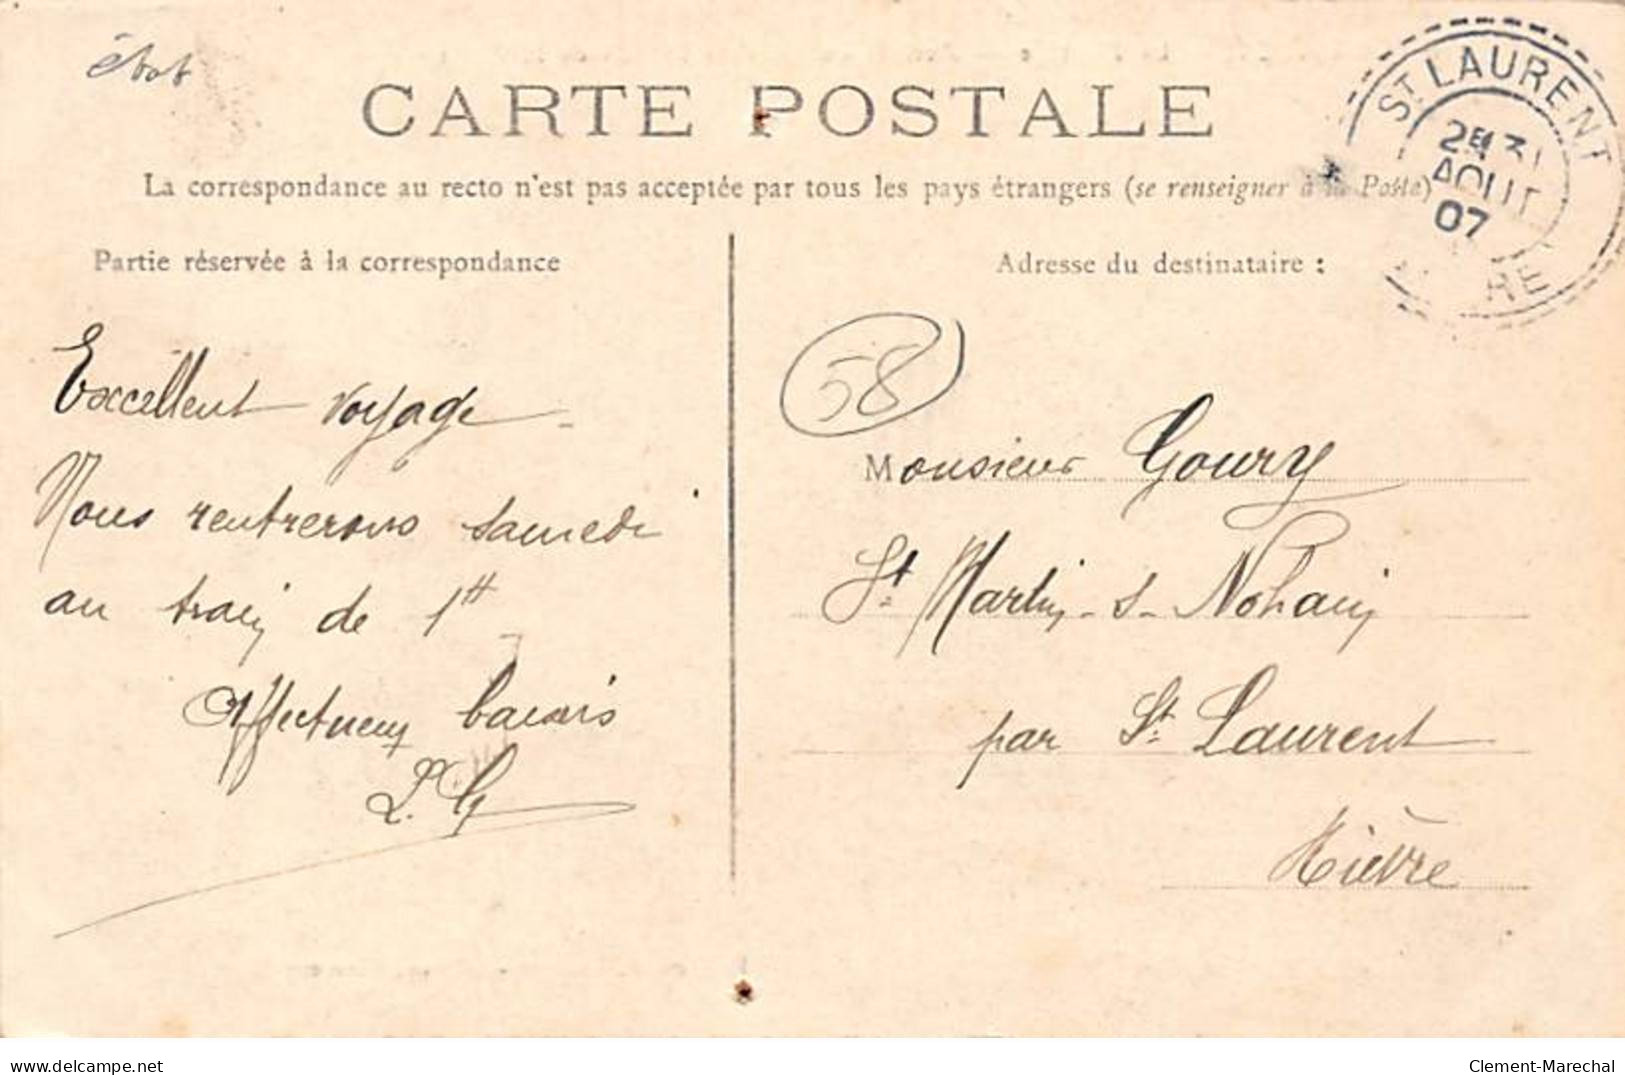 état
CARTE POSTALE
La correspondance au recto n'est pas acceptée par tous les pays étrangers (se renseigner à la Poste)
ST LAURENT
2E 31
AOUT
07
Partie réservée à la correspondance
Excellent voyage
Nous rentrerons samedi
au train de 1H
Affectueux baisers
L. G
Adresse du destinataire :
58
Monsieur Goury
St. Martin-s-Nohain
par St. Laurent
Nièvre
www.delcampe.net
Clement-Marechal